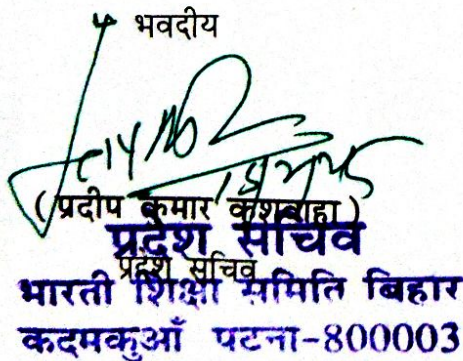 भवदीय
( प्रदीप कुमार कुशवाहा )
प्रदेश सचिव
प्रदेश सचिव
भारती शिक्षा समिति बिहार
कदमकुआँ पटना-800003